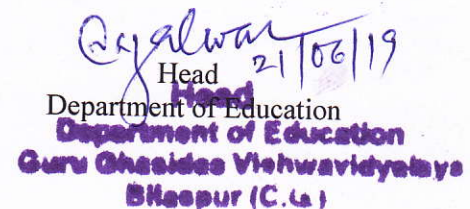 21/06/19
Head
Department of Education
Head
Department of Education
Guru Ghasidas Vishwavidyalaya
Bilaspur (C.G.)